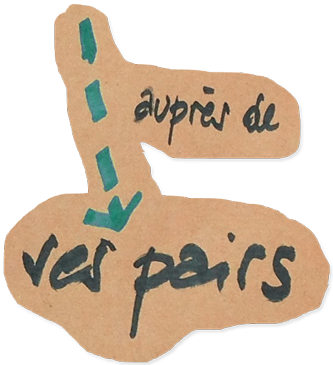 auprès de
ses pairs